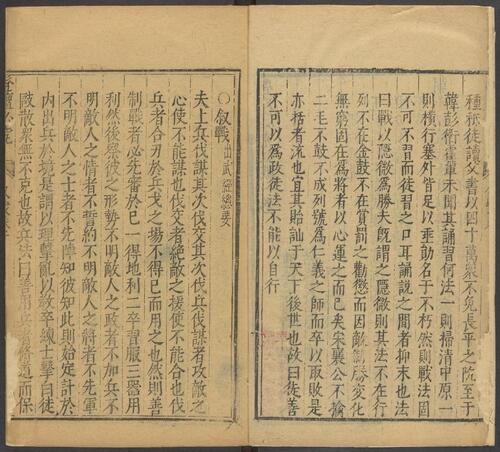 種祗徒讀父書以四十萬衆不免長平之阬至于
韓彭衛霍輩未聞其誦習何法一則掃清中原一
則橫行塞外皆足以垂勛名于不朽然則戰法固
不可不習而徒習之口耳誦說之間者抑末也法
曰戰以隱微為勝夫旣謂之隱微則其法不在行
列不在金鼓不在賞罰之勸懲而因敵制勝變化
無窮固在為將者以心運之而已矣宋襄公不擒
二毛不鼓不成列號為仁義之師而卒以取敗是
亦梏者流也宜其貽訕于天下後世也故曰徒善
不可以為政徒法不能以自行
○叙戰 出武經總要
夫上兵伐謀其次伐交其次伐兵伐謀者攻敵之
心使不能謀也伐交者絶敵之援使不能合也伐
兵者合刃於兵戈之塲不得已而用之也然則善
制戰者必先審於已一得地利二卒習服三器用
利然後察彼之形勢不明敵人之政者不加兵不
明敵人之情者不誓約不明敵人之將者不先軍
不明敵人之士者不先陣知彼知此則始定計於
內出兵於境是謂以理擊亂以教卒練士擊白徒
敺散衆無不克也故兵法曰善用兵者脩道而保